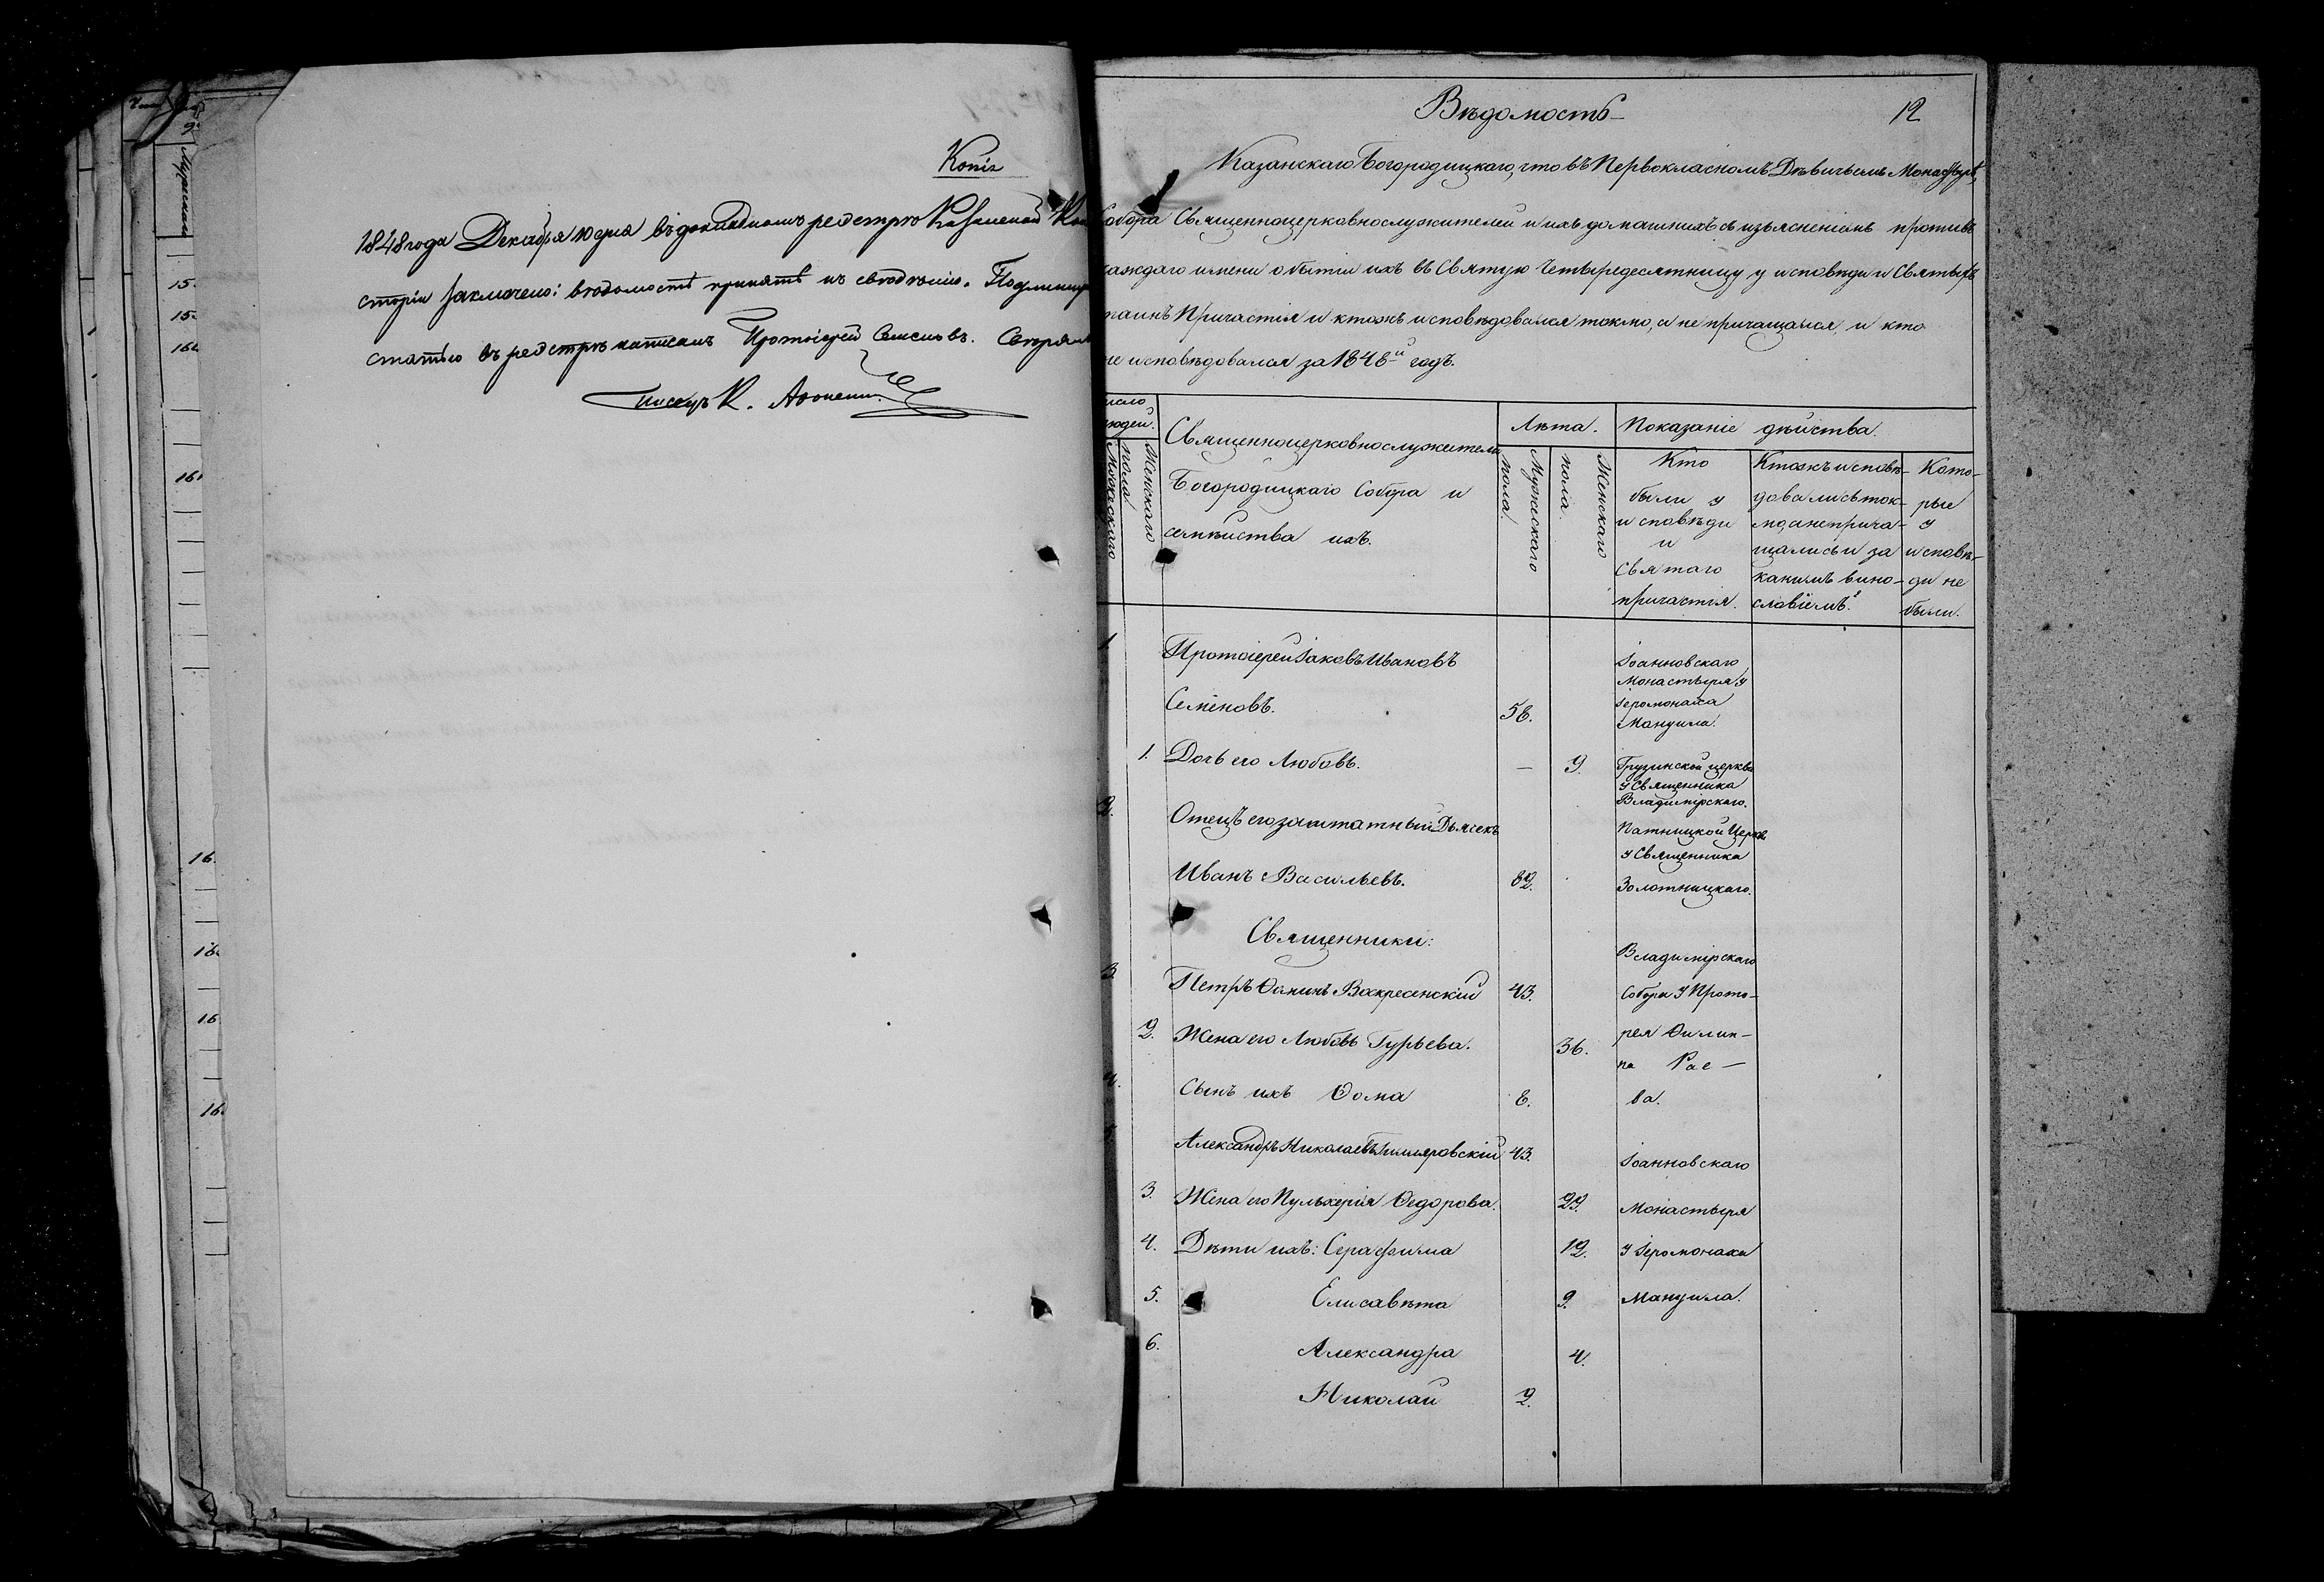 Копія
1848 года Декабря 10 дня въ докладномъ реестрѣ Казанской Кон
систоріи заключено: вѣдомость принять къ свѣдѣнію. Подлинную
статью въ реестрѣ написалъ Протоіерей Семеновъ. Свѣрялъ
12
Вѣдомость
Казанскаго Богородицкаго, что въ Первокласномъ Дѣвичьемъ Монастырѣ,
Собора Священноцерковнослужителей и ихъ домашнихъ съ изъясненіемъ противъ
каждаго имени о бытіи ихъ въ Святую Четыредесятницу у исповѣди и Святыхъ
Таинъ Причастія и ктожъ исповѣдовался токмо, а не причащался, и кто
не исповѣдовался за 1848й годъ.
число людей.
Мужескаго пола
Женскаго
Священноцерковнослужители
Богородицкаго Собора и
семѣйства ихъ.
Лѣта.
Мужескаго пола.
Женскаго пола.
Показаніе дѣйства.
Кто были у исповѣди и Святаго причастія.
Ктожъ исповѣ-довались ток-мо, а не прича-щались и за какимъ вино-словіемъ.
Кото-рые у исповѣ-ди не были.
1 Протоіерей Іаковъ Ивановъ
Семеновъ. 58.
Іоанновскаго
Монастыря у
Іеромонаха
Мануила.
1. Дочь его Любовь. — 9.
Грузинской церкви
у Священника
Владимірскаго.
2. Отецъ его заштатный Дьячекъ
Иванъ Васильевъ. 82.
Пятницкой Церкви
у Священника
Золотницкаго.
Священники:
3. Петръ Ѳоминъ Воскресенскій 43.
2. Жена его Любовь Гурьева. 36.
4. Сынъ ихъ Ѳома 8.
Владимірскаго
Собора у Прото-
рея Филип-
па Рае-
ва.
5. Александръ Николаевъ Гиляровскій 43.
3. Жена его Пульхерія Ѳедорова. 29.
4. Дѣти ихъ: Серафима 12.
5. Елисавѣта 9.
6. Александра 4.
Николай 2.
Іоанновскаго
Монастыря
у Іеромонаха
Мануила.